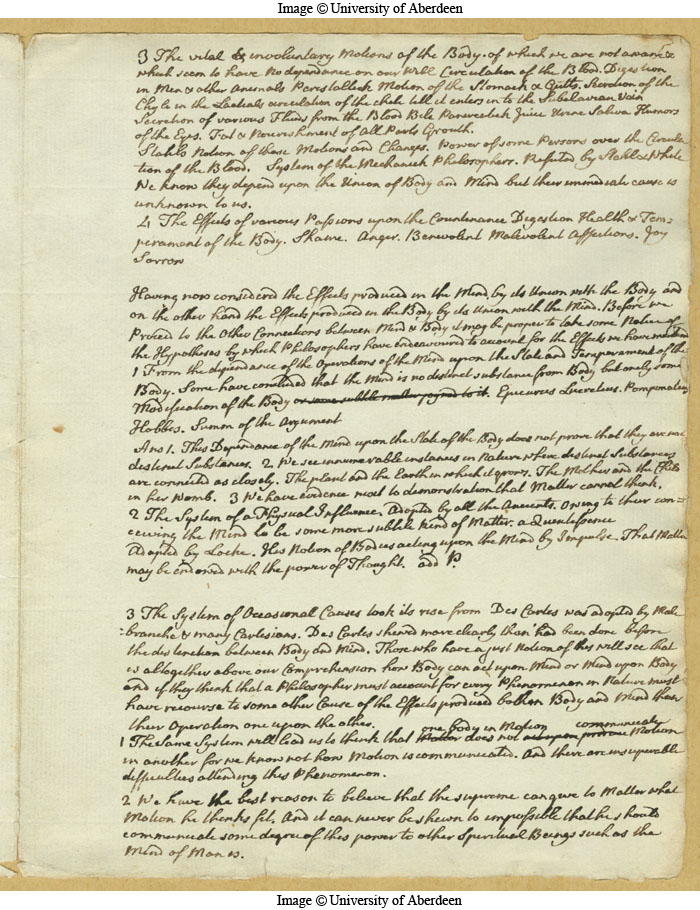 Image © University of Aberdeen
3 The vital & involuntary Motions of the Body. of which we are not aware &
which seem to have no dependance on our Will Circulation of the Blood. Digestion
in Men & other Animals Peristaltick Motion of the Stomach & Gutts. Secretion of the
Chyle in the Lacteals circulation of the chyle till it enters into the Subclavian Vein
Secretion of various Fluids from the Blood Bile Pancreatick Juice Urine Saliva Humors
of the Eyes. Fat & Nourishment of all Parts Growth.
Stahls Notion of these Motions and Changes. Power of some Persons over the Circula
tion of the Blood. System of the Mechanick Philosophers. Refuted by Stahl &
We know they depend upon the Union of Body and Mind but their immediate cause is
unknown to us.
4 The Effects of various Passions upon the Countenance Digestion Health & Tem-
perament of the Body. Shame. Anger. Benevolent Malevolent Affections. Joy
Sorrow
Having now considered the Effects produced in the Mind, by its Union with the Body and
on the other hand the Effects produced in the Body by its Union with the Mind. Before we
Proceed to the Other Connections between Mind & Body it may be proper to take some Notice of
the Hypotheses by which Philosophers have endeavoured to account for the Effects we have
1 From the dependance of the Operations of the Mind upon the State and Temperament of the
Body. Some have concluded that the Mind is no distinct substance from Body but only some
Modification of the Body or some subtile matter joyned to it. Epicurus Lucretius. Pomponatius
Hobbes. Summ of the Argument
Ans 1. This Dependance of the Mind upon the State of the Body does not prove that they are not
distinct Substances. 2 We see innumerable instances in Nature where distinct Substances
are connected as closely. The plant and the Earth in which it grows. The Mother and the Child
in her Womb. 3 We have evidence next to demonstration that Matter cannot think.
2 The System of a Physical Influence. Adopted by all the Ancients. Owing to their con-
ceiving the Mind to be some more subtile kind of Matter. a Quintessence
Adopted by Locke. His Notion of Bodies acting upon the Mind by Impulse. That Matter
may be endowed with the power of Thought. add P.
3 The System of Occasional Causes took its rise from Des Cartes was adopted by Male
branche & many Cartesians. Des Cartes shewed more clearly than had been done before
the distinction between Body and Mind. Those who have a just Notion of this will see that
it is altogether above our Comprehension how Body can act upon Mind or Mind upon Body
and if they think that a Philosopher must account for every Phenomenon in Nature must
have recourse to some other Cause of the Effects produced both in Body and Mind than
their Operation one upon the other.
one body in Motion communicate
1 The same System will lead us to think that Matter does not Motion
in another for we know not how Motion is communicated. And there are insuperable
difficulties attending this Phenomenon.
2 We have the best reason to believe that the supreme can give to Matter what
Motion he thinks fit. And it can never be shewn to impossible that he should
communicate some degree of this power to other Spiritual Beings such as the
Mind of Man is.
Image © University of Aberdeen